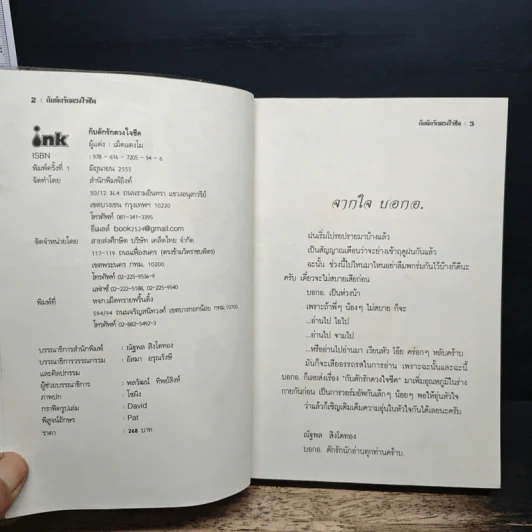 2 : กับดักรักดวงใจซีด
ink
กับดักรักดวงใจซีด
ผู้แต่ง : เม็ดแตงโม
ISBN : 978 - 616 - 7205 - 94 - 6
พิมพ์ครั้งที่ 1 มิถุนายน 2555
จัดทำโดย สำนักพิมพ์อิงค์
50/12 ม.4 ถนนรามอินทรา แขวงอนุสาวรีย์
เขตบางเขน กรุงเทพฯ 10220
โทรศัพท์ 081-341-3395
อีเมลล์ book2524@gmail.com
จัดจำหน่ายโดย สายส่งศึกษิต บริษัท เคล็ดไทย จำกัด
117-119 ถนนเฟื่องนคร (ตรงข้ามวัดราชบพิตร)
เขตพระนคร กทม. 10200
โทรศัพท์ 02-225-9536-9
แฟกซ์ 02-222-5188, 02-225-9540
พิมพ์ที่ หจก.เม็ดทรายพริ้นติ้ง
594/94 ถนนจรัญสนิทวงศ์ เขตบางกอกน้อย กทม.10700
โทรศัพท์ 02-882-5492-3
บรรณาธิการสำนักพิมพ์ : ณัฐพล สิงโตทอง
บรรณาธิการวรรณกรรม : อิสมา อรุณรังษี
และศิลปกรรม
ผู้ช่วยบรรณาธิการ : พลวัฒน์ ทิพย์สิงห์
ภาพปก : โชมิง
กราฟิครูปเล่ม : David
พิสูจน์อักษร : Pat
ราคา : 268 บาท
กับดักรักดวงใจซีด : 3
จากใจ บอกอ.
ฝนเริ่มโปรยปรายมาบ้างแล้ว
เป็นสัญญาณเตือนว่าจะย่างเข้าฤดูฝนกันแล้ว
ฉะนั้น ช่วงนี้ไปไหนมาไหนอย่าลืมพกร่มกันไว้บ้างก็ดีนะ
ครับ เดี๋ยวจะไม่สบายเสียก่อน
บอกอ. เป็นห่วงน้า
เพราะถ้าพี่ๆ น้องๆ ไม่สบาย ก็จะ
...อ่านไป ไอไป
...อ่านไป จามไป
...หรืออ่านไปอ่านมา เวียนหัว โอ๊ย คร่อกๆ หลับคร้าบ
มันก็จะเสียอรรถรสในการอ่าน เพราะฉะนั้นและฉะนี้
บอกอ. ก็เลยส่งเรื่อง “กับดักรักดวงใจซีด” มาเพิ่มอุณหภูมิในร่าง
กายกันก่อน เป็นการวอร์มอัพกันเล็กๆ น้อยๆ พอให้อุ่นหัวใจ
ว่าแล้วก็เชิญเติมเต็มความอุ่นในหัวใจกันได้เลยนะครับ
ณัฐพล สิงโตทอง
บอกอ. ดักรักนักอ่านทุกท่านคร้าบ.